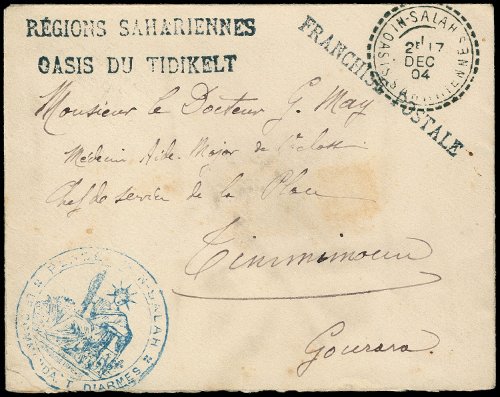 RÉGIONS SAHARIENNES
OASIS DU TIDIKELT
FRANCHISE POSTALE
IN-SALAH
OASIS SAHARIENNES
2E 17
DEC
04
Monsieur le Docteur G. May
Médecin Aide-Major de 1re classe
Chef de service de la Place
Timmimoun
Gourara
IN-SALAH
D'ARMES